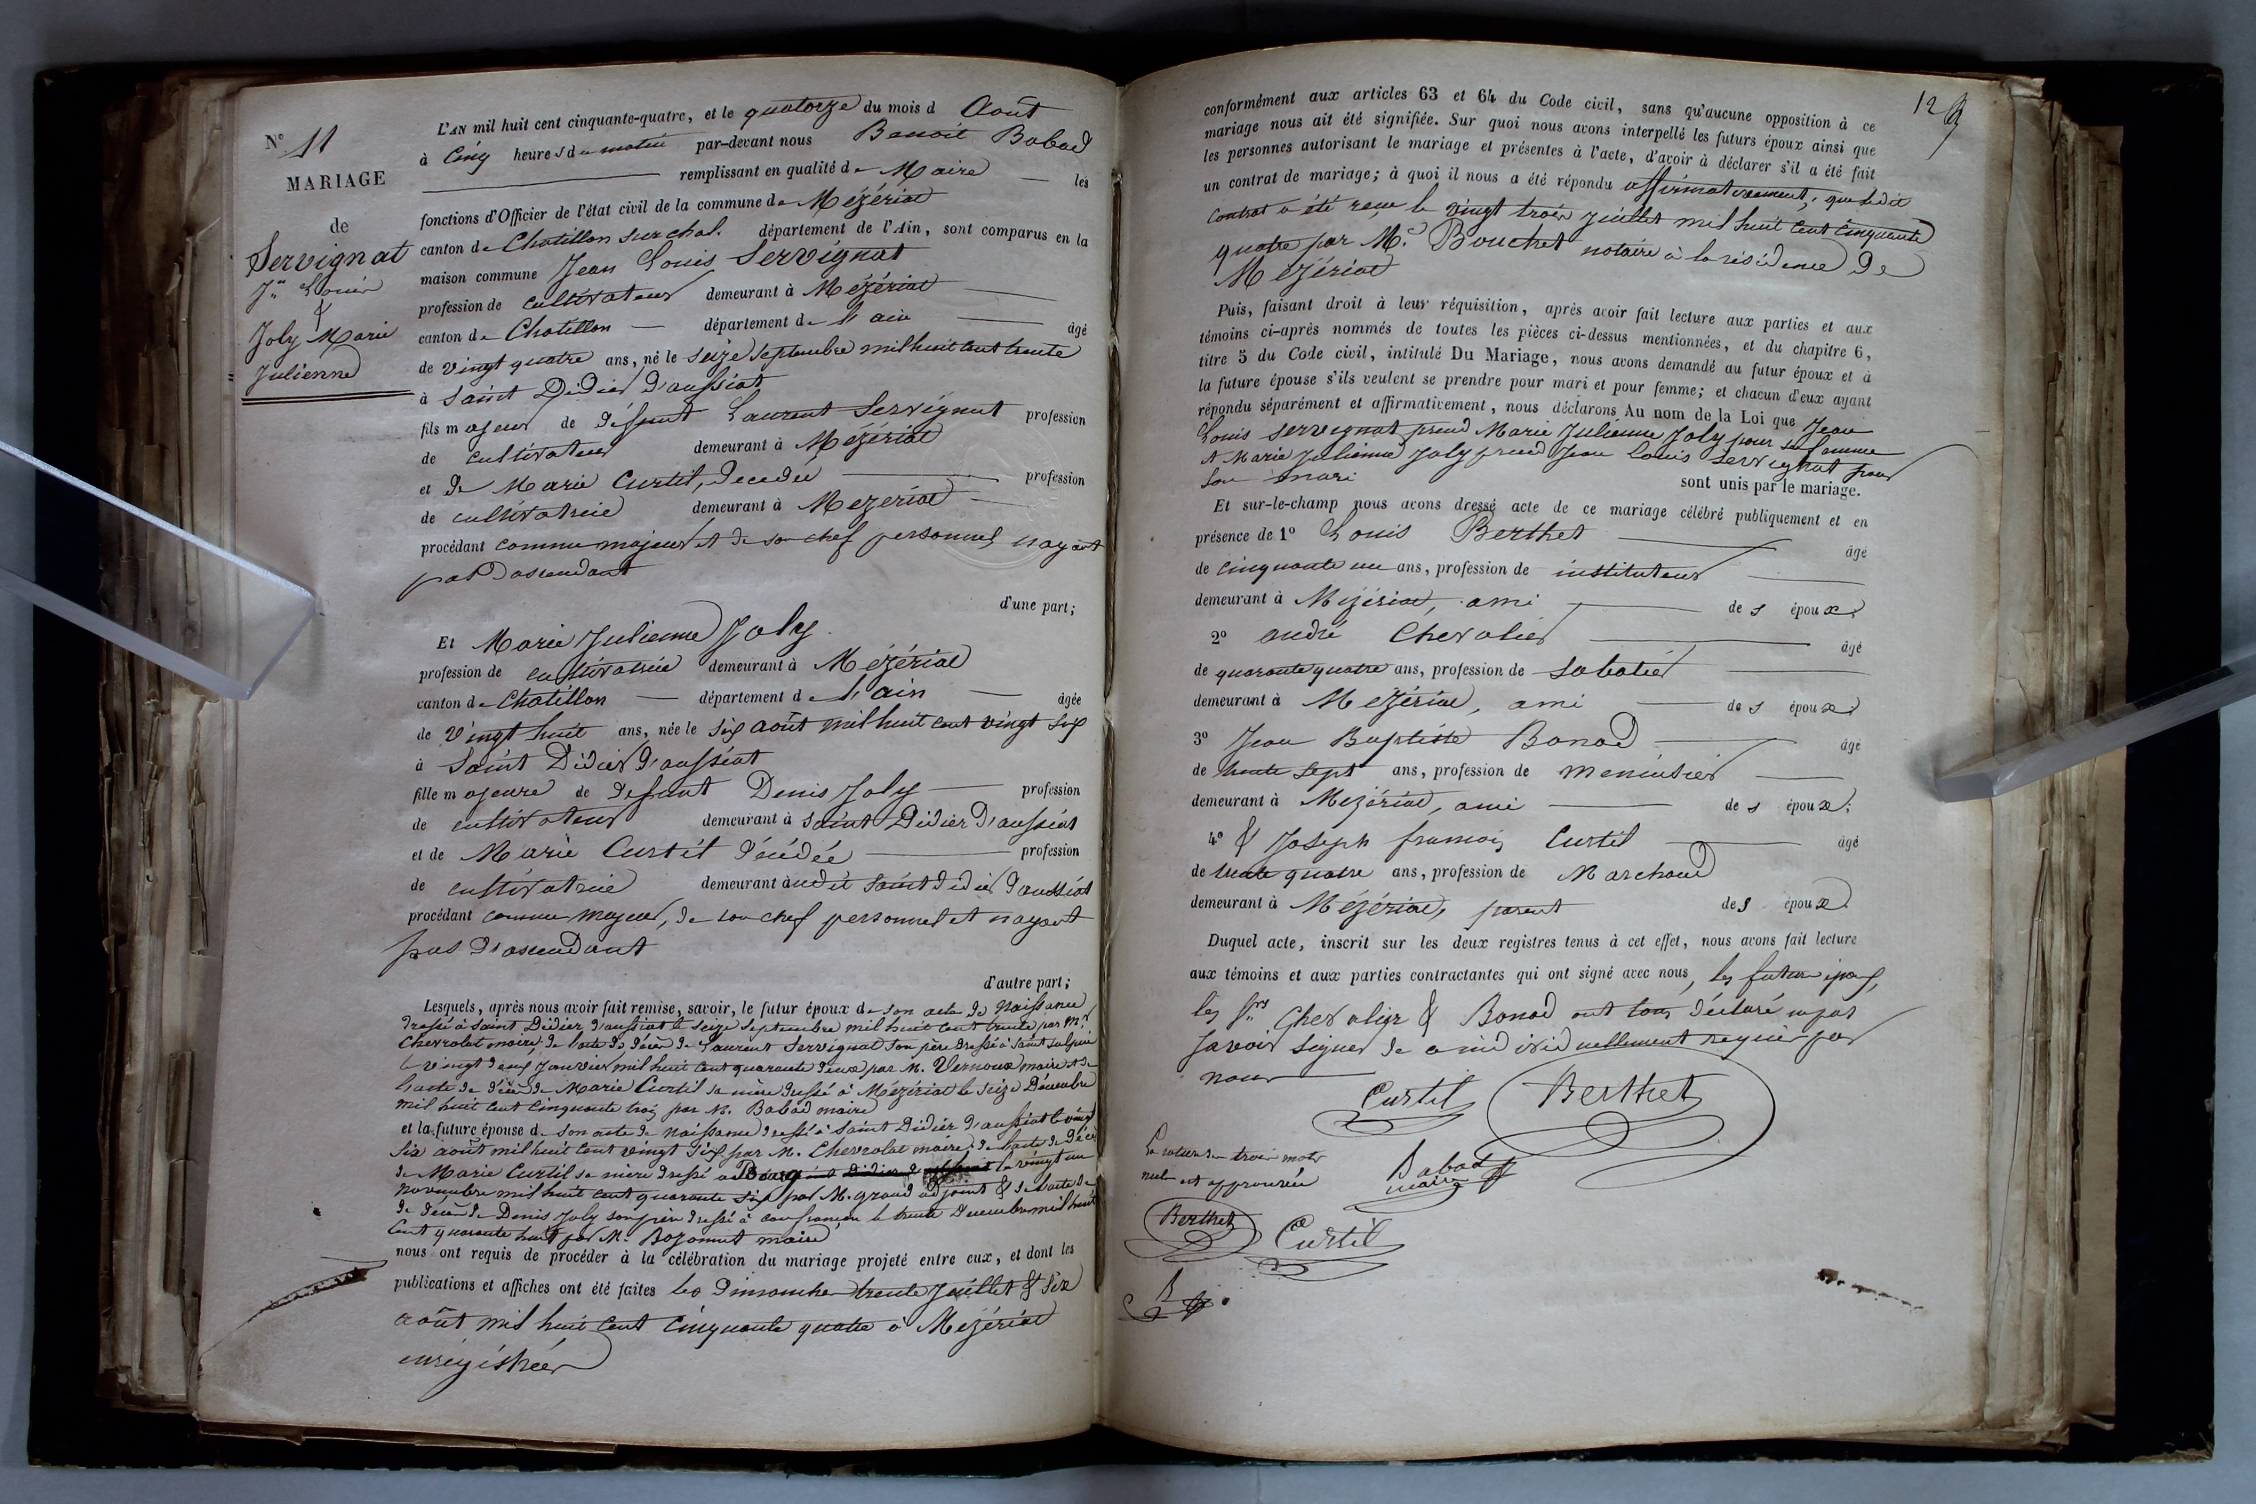 N° 11
MARIAGE
de
Servignat
Jn Louis
&
Joly Marie
Julienne
L'AN mil huit cent cinquante-quatre, et le quatorze du mois d Août
à Cinq heures du matin par-devant nous Benoit Babad
remplissant en qualité de Maire les
fonctions d'Officier de l'état civil de la commune de Mézériat
canton de Chatillon sur chal. département de l'Ain, sont comparus en la
maison commune Jean Louis Servignat
profession de cultivateur demeurant à Mézériat
canton de Chatillon département de l'ain âgé
de vingt quatre ans, né le seize septembre mil huit cent trente
à Saint Didier d'aussiat
fils majeur de défunt Laurent Servignat profession
de cultivateur demeurant à Mézériat
et de Marie Curtil, decedée profession
de cultivatrice demeurant à Mezeriat
procédant comme majeur et de son chef personnel nayant
pas d'ascendant
d'une part;
Et Marie Julienne Joly
profession de cultivatrice demeurant à Mézériat
canton de Chatillon département de l'ain âgée
de vingt huit ans, née le six août mil huit cent vingt six
à Saint Didier d'aussiat
fille majeure de defunt Denis Joly profession
de cultivateur demeurant à saint Didier d'aussiat
et de Marie Curtil décédée profession
de cultivatrice demeurant audit saint Didier d'aussiat
procédant comme majeur, de son chef personnel et nayant
pas d'ascendant
d'autre part;
Lesquels, après nous avoir fait remise, savoir, le futur époux de son acte de naissance
dressé à saint Didier d'aussiat le seize septembre mil huit cent trente par Mr
Chevrolat maire, de l'acte de décès de Laurent Servignat son père dressé à saint sulpice
le vingt deux Janvier mil huit cent quarante deux par M. Vernoux maire et de
l'acte de décès de Marie Curtil sa mère dressé à Mézériat le seize Décembre
mil huit cent cinquante trois par M. Babad maire
et la future épouse de son acte de naissance dressé à saint Didier d'aussiat le vingt
six août mil huit cent vingt six par M. Chevrolat maire, de l'acte de décès
de Marie Curtil sa mère dressé à Bourg le vingt un
novembre mil huit cent quarante six par M. graud adjoint & de l'acte de
de décès de Denis Joly son père dressé à confrançon le trente Decembre mil huit
cent quarante huit par M. Bozonnet maire
nous ont requis de procéder à la célébration du mariage projeté entre eux, et dont les
publications et affiches ont été faites les Dimanches trente Juillet & six
août mil huit cent cinquante quatre à Mézériat
enrégistrées
12
conformément aux articles 63 et 64 du Code civil, sans qu'aucune opposition à ce
mariage nous ait été signifiée. Sur quoi nous avons interpellé les futurs époux ainsi que
les personnes autorisant le mariage et présentes à l'acte, d'avoir à déclarer s'il a été fait
un contrat de mariage; à quoi il nous a été répondu affirmativement, que ledit
contrat a été reçu le vingt trois juillet mil huit cent cinquante
quatre par Me Bouchet notaire à la résidence de
Mézériat
Puis, faisant droit à leur réquisition, après avoir fait lecture aux parties et aux
témoins ci-après nommés de toutes les pièces ci-dessus mentionnées, et du chapitre 6,
titre 5 du Code civil, intitulé Du Mariage, nous avons demandé au futur époux et à
la future épouse s'ils veulent se prendre pour mari et pour femme; et chacun d'eux ayant
répondu séparément et affirmativement, nous déclarons Au nom de la Loi que Jean
Louis Servignat prend Marie Julienne Joly pour sa femme
et Marie Julienne Joly prend Jean Louis Servignat pour
son mari
sont unis par le mariage.
Et sur-le-champ nous avons dressé acte de ce mariage célébré publiquement et en
présence de 1° Louis Berthet âgé
de cinquante un ans, profession de instituteur
demeurant à Mézériat, ami des époux,
2° andré Chevalier âgé
de quarante quatre ans, profession de sabotier
demeurant à Mezériat, ami des époux,
3° Jean Baptiste Bonod âgé
de trente sept ans, profession de menuisier
demeurant à Mezériat, ami des époux;
4° & Joseph françois Curtil âgé
de trente quatre ans, profession de Marchand
demeurant à Mézériat, parent des époux.
Duquel acte, inscrit sur les deux registres tenus à cet effet, nous avons fait lecture
aux témoins et aux parties contractantes qui ont signé avec nous, les futurs époux,
les Srs Chevalier & Bonod ont tous déclaré ne pas
savoir signer de ce individuellement requis par
nous
Curtil Berthet
La rature de trois mots
nuls est approuvée
Babad
maire
Berthet Curtil
B